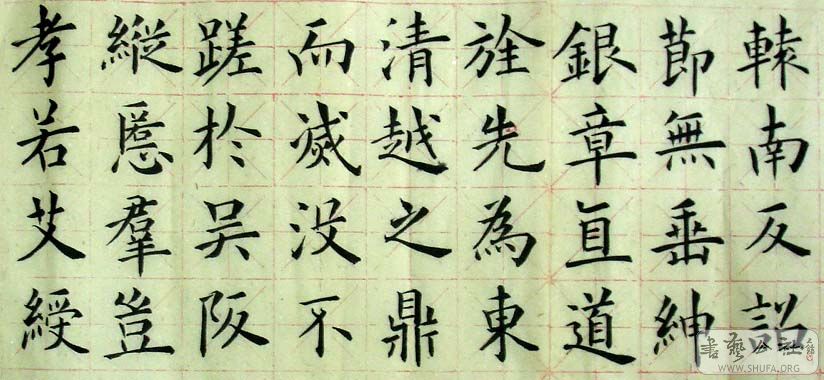 轅南反詔
節無垂紳
銀章直道
旌先為東
清越之鼎
而滅没不
蹉於吴阪
縱慝羣豈
孝若艾綬
書藝公社
WWW.SHUFA.ORG